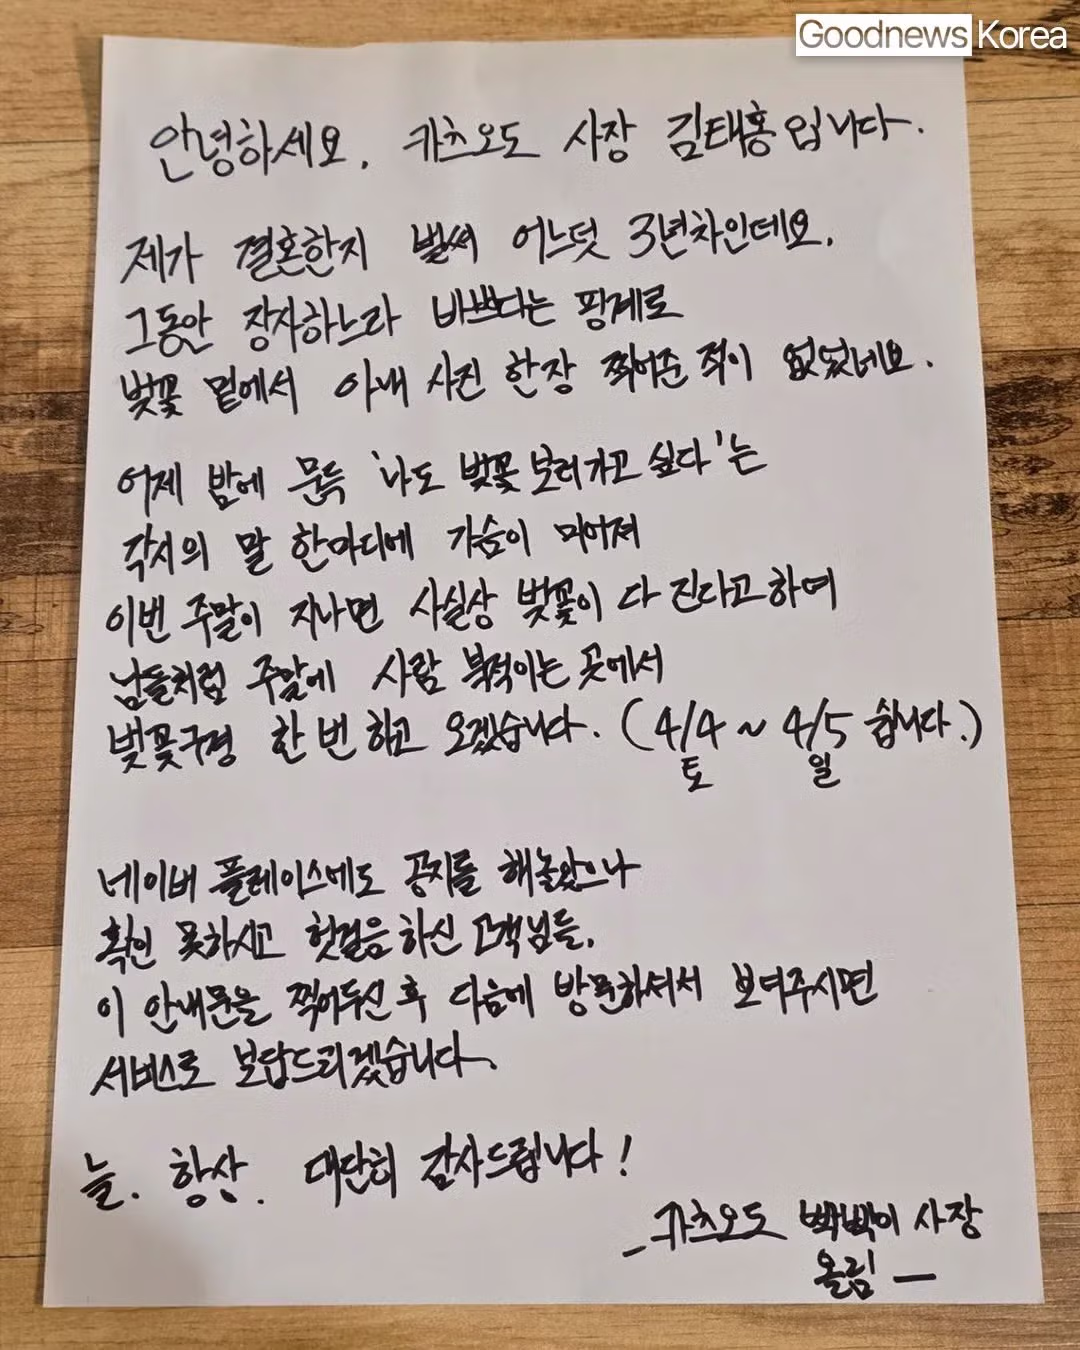 Goodnews Korea
안녕하세요. 카츠오도 사장 김태홍입니다.
제가 결혼한지 벌써 어느덧 3년차인데요.
그동안 장사하느라 바쁘다는 핑계로
벚꽃 밑에서 아내 사진 한장 찍어준 적이 없었네요.
어제 밤에 문득 '나도 벚꽃 보러가고 싶다'는
각시의 말 한마디에 가슴이 미어져
이번 주말이 지나면 사실상 벚꽃이 다 진다고하여
남들처럼 주말에 사람 북적이는 곳에서
벚꽃구경 한 번 하고 오겠습니다. (4/4 ~ 4/5 쉽니다.)
토 일
네이버 플레이스에도 공지를 해놓았으나
확인 못하시고 헛걸음 하신 고객님들,
이 안내문을 찍어두신 후 다음에 방문하셔서 보여주시면
서비스로 보답드리겠습니다.
늘. 항상. 대단히 감사드립니다!
- 카츠오도 빡빡이 사장
올림 -